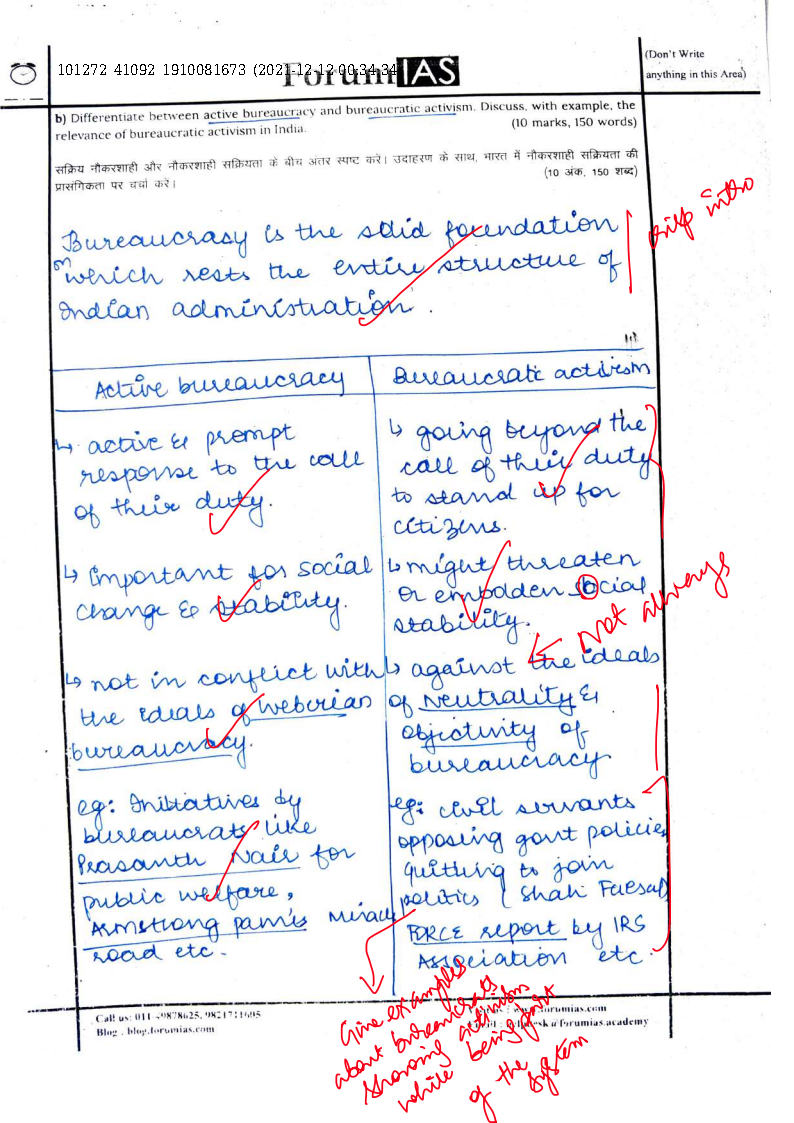 101272 41092 1910081673 (2021-12-12 00:34:34
ForumIAS
(Don't Write
anything in this Area)
b) Differentiate between active bureaucracy and bureaucratic activism. Discuss, with example, the
relevance of bureaucratic activism in India. (10 marks, 150 words)
सक्रिय नौकरशाही और नौकरशाही सक्रियता के बीच अंतर स्पष्ट करें। उदाहरण के साथ, भारत में नौकरशाही सक्रियता की
प्रासंगिकता पर चर्चा करें। (10 अंक, 150 शब्द)
Bureaucrasy is the solid foundation
on which rests the entire structure of
Indian administration.
intro
Active bureaucracy
↳ active & prompt
response to the call
of their duty.
↳ Important for social
change & stability.
↳ not in conflict with
the ideals of Weberian
bureaucracy.
eg: Initiatives by
bureaucrats like
Prasanth Nair for
public welfare,
Armstrong pam's
road etc.
Bureaucratic activism
↳ going beyond the
call of their duty
to stand up for
citizens.
↳ might threaten
or embolden social
stability.
Not always
↳ against the ideals
of Neutrality &
objectivity of
bureaucracy
eg: civil servants
opposing govt policies
quitting to join
politics (Shah Faesal)
FORCE report by IRS
Association etc.
Give examples
about bureaucrats
showing activism
while being part
of the system
Blog : blog.forumias.com